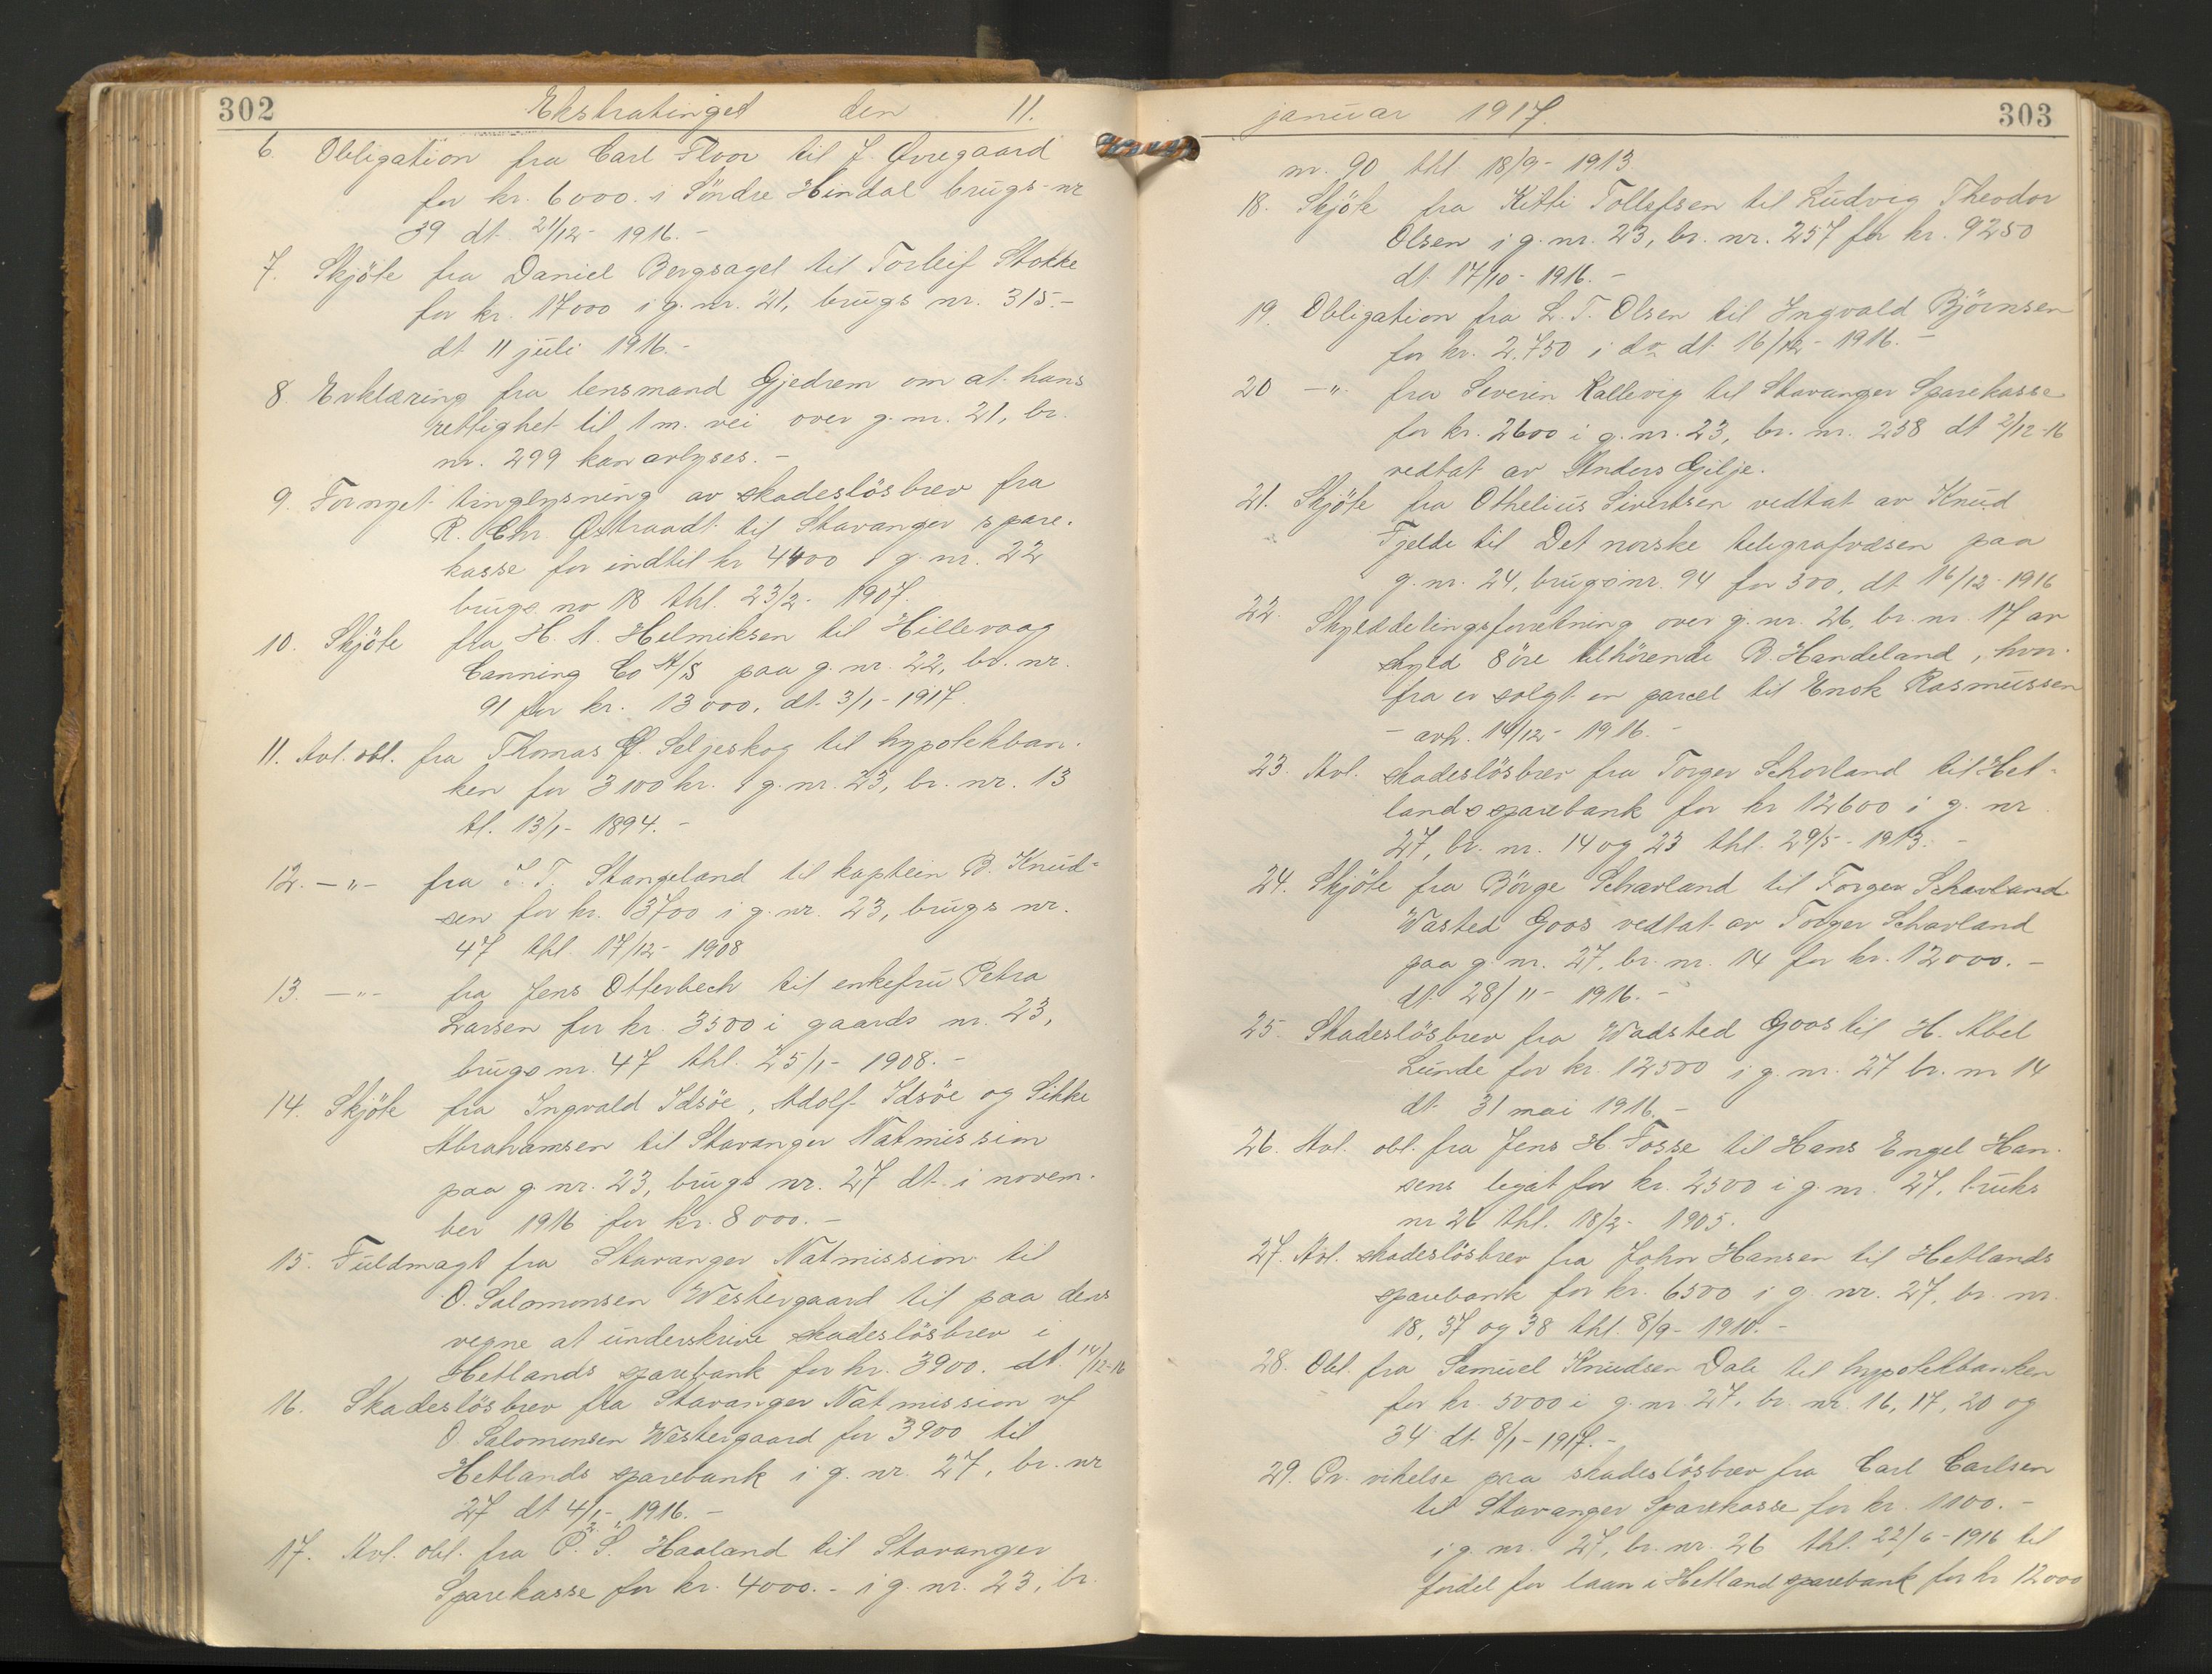 302 Ekstratinget den 11.
6. Obligation fra Carl Floor til J. Øvregaard
for kr. 6000. i Söndre Hindal brugs-nr
39 dt. 21/12- 1916.-
7. Skjöte fra Daniel Bergsagel til Torleif Stokke
for kr. 17000 i g. nr. 21, brugs nr. 315.-
dt 11 juli 1916.-
8 Erklæring fra lensmand Gjedrem om at hans
rettighet til 1 m. vei over g. nr. 21, br.
nr. 299 kan avlyses.-
9. Fornyet tinglysning av skadeslösbrev fra
R. Chr. Østraadt til Stavanger spare-
kasse for indtil kr 4400 i g. nr. 22
brugs no 18 thl. 23/2- 1907.
10. Skjöte fra H. A. Helmiksen til Hillevaag
Canning Co A/S paa g. nr. 22, br. nr.
91 for kr. 13000, dt. 3/1-1917.
11. Avl. obl. fra Thomas G. Seljeskog til hypotekban-
ken for 3100 kr. i g. nr. 23, br. nr. 13
tl. 13/1- 1894.-
12. -"- fra T. Stangeland til kaptein B. Knud-
sen for kr. 3700 i g. nr. 23, brugs nr.
47 thl 17/12- 1908
13. -"- fra Jens Otterbech til enkefru Petra
Larsen for kr. 3500 i gaards nr. 23,
brugs nr. 47 thl. 25/1- 1908.-
14. Skjöte fra Ingvald Idsöe, Adolf Idsöe og Sikke
Abrahamsen til Stavanger Natmission
paa g nr. 23, brugs nr. 27 dt. i novem-
ber 1916 for kr. 8000.-
15. Fuldmagt fra Stavanger Natmission til
O. Salomonsen Westergaard til paa dens
vegne at underskrive skadeslösbrev i
Hetlands sparebank for kr. 3900. dt. 14/12-16
16. Skadeslösbrev fra Stavanger Natmission vf
O. Salomonsen Westergaard for 3900 til
Hetlands sparebank i g. nr. 27, br. nr
27 dt 4/1- 1916.-
17. Avl. obl. fra P. S. Haaland til Stavanger
Sparekasse for kr. 4000.- i g. nr. 23, br.
januar 1917. 303
nr. 90 thl 18/9- 1913
18. Skjöte fra Kitti Tollefsen til Ludvig Theodor
Olsen i g. nr. 23, br. nr. 257 for kr. 9250
dt 17/10- 1916.-
19. Obligation fra L. T. Olsen til Ingvald Björnsen
for kr. 2.750 i do dt. 16/12- 1916.-
20 -"- fra Severin Kallevig til Stavanger Sparekasse
for kr. 2600 i g. nr. 23, br. nr. 258 dt 2/12-16
vedtat av Anders Gilje.
21. Skjöte fra Othelius Sivertsen vedtat av Knud
Fjelde til Det norske telegrafvæsen paa
g. nr. 24, brugs nr. 94 for 300, dt 16/12-1916
22. Skylddelingsforretning over g. nr. 26, br. nr. 17 av
skyld 8 öre tilhörende B. Handeland, hvor-
fra er solgt en parcel til Enok Rasmussen
- avh. 14/12- 1916.-
23. Avl. skadeslösbrev fra Torger Scharland til Het-
lands sparebank for kr 12600 i g. nr
27, br. nr. 14 og 23 thl. 29/5- 1913.-
24. Skjöte fra Börge Scharland til Torger Scharland
Wasted Goos vedtat av Torger Scharland
paa g. nr. 27, br. nr. 14 for kr. 12000.-
dt. 28/11- 1916.-
25. Skadeslösbrev fra Wadsted Goos til H. Abel
Lunde for kr. 12500 i g. nr. 27 br. nr 14
dt. 31 mai 1916.-
26. Avl. obl. fra Jens H. Fosse til Hans Engel Han-
sens legat for kr. 2500 i g. nr. 27, bruks
nr 26 thl. 18/2- 1905.
27. Avl. skadeslösbrev fra John Hansen til Hetlands
sparebank for kr. 6500 i g. nr. 27, br. nr.
18, 37 og 38 thl. 8/9- 1910.-
28. Obl. fra Samuel Knudsen Dale til hypotekbanken
for kr. 5000 i g. nr 27, br. nr. 16, 17, 20 og
34 dt 8/1-1917.-
29. Pr. vikelse paa skadeslösbrev fra Carl Carlsen
til Stavanger Sparekasse for kr. 1100.-
i g. nr. 27, br. nr. 26 thl. 22/6-1916 til
fordel for laan i Hetland sparebank for kr 12000